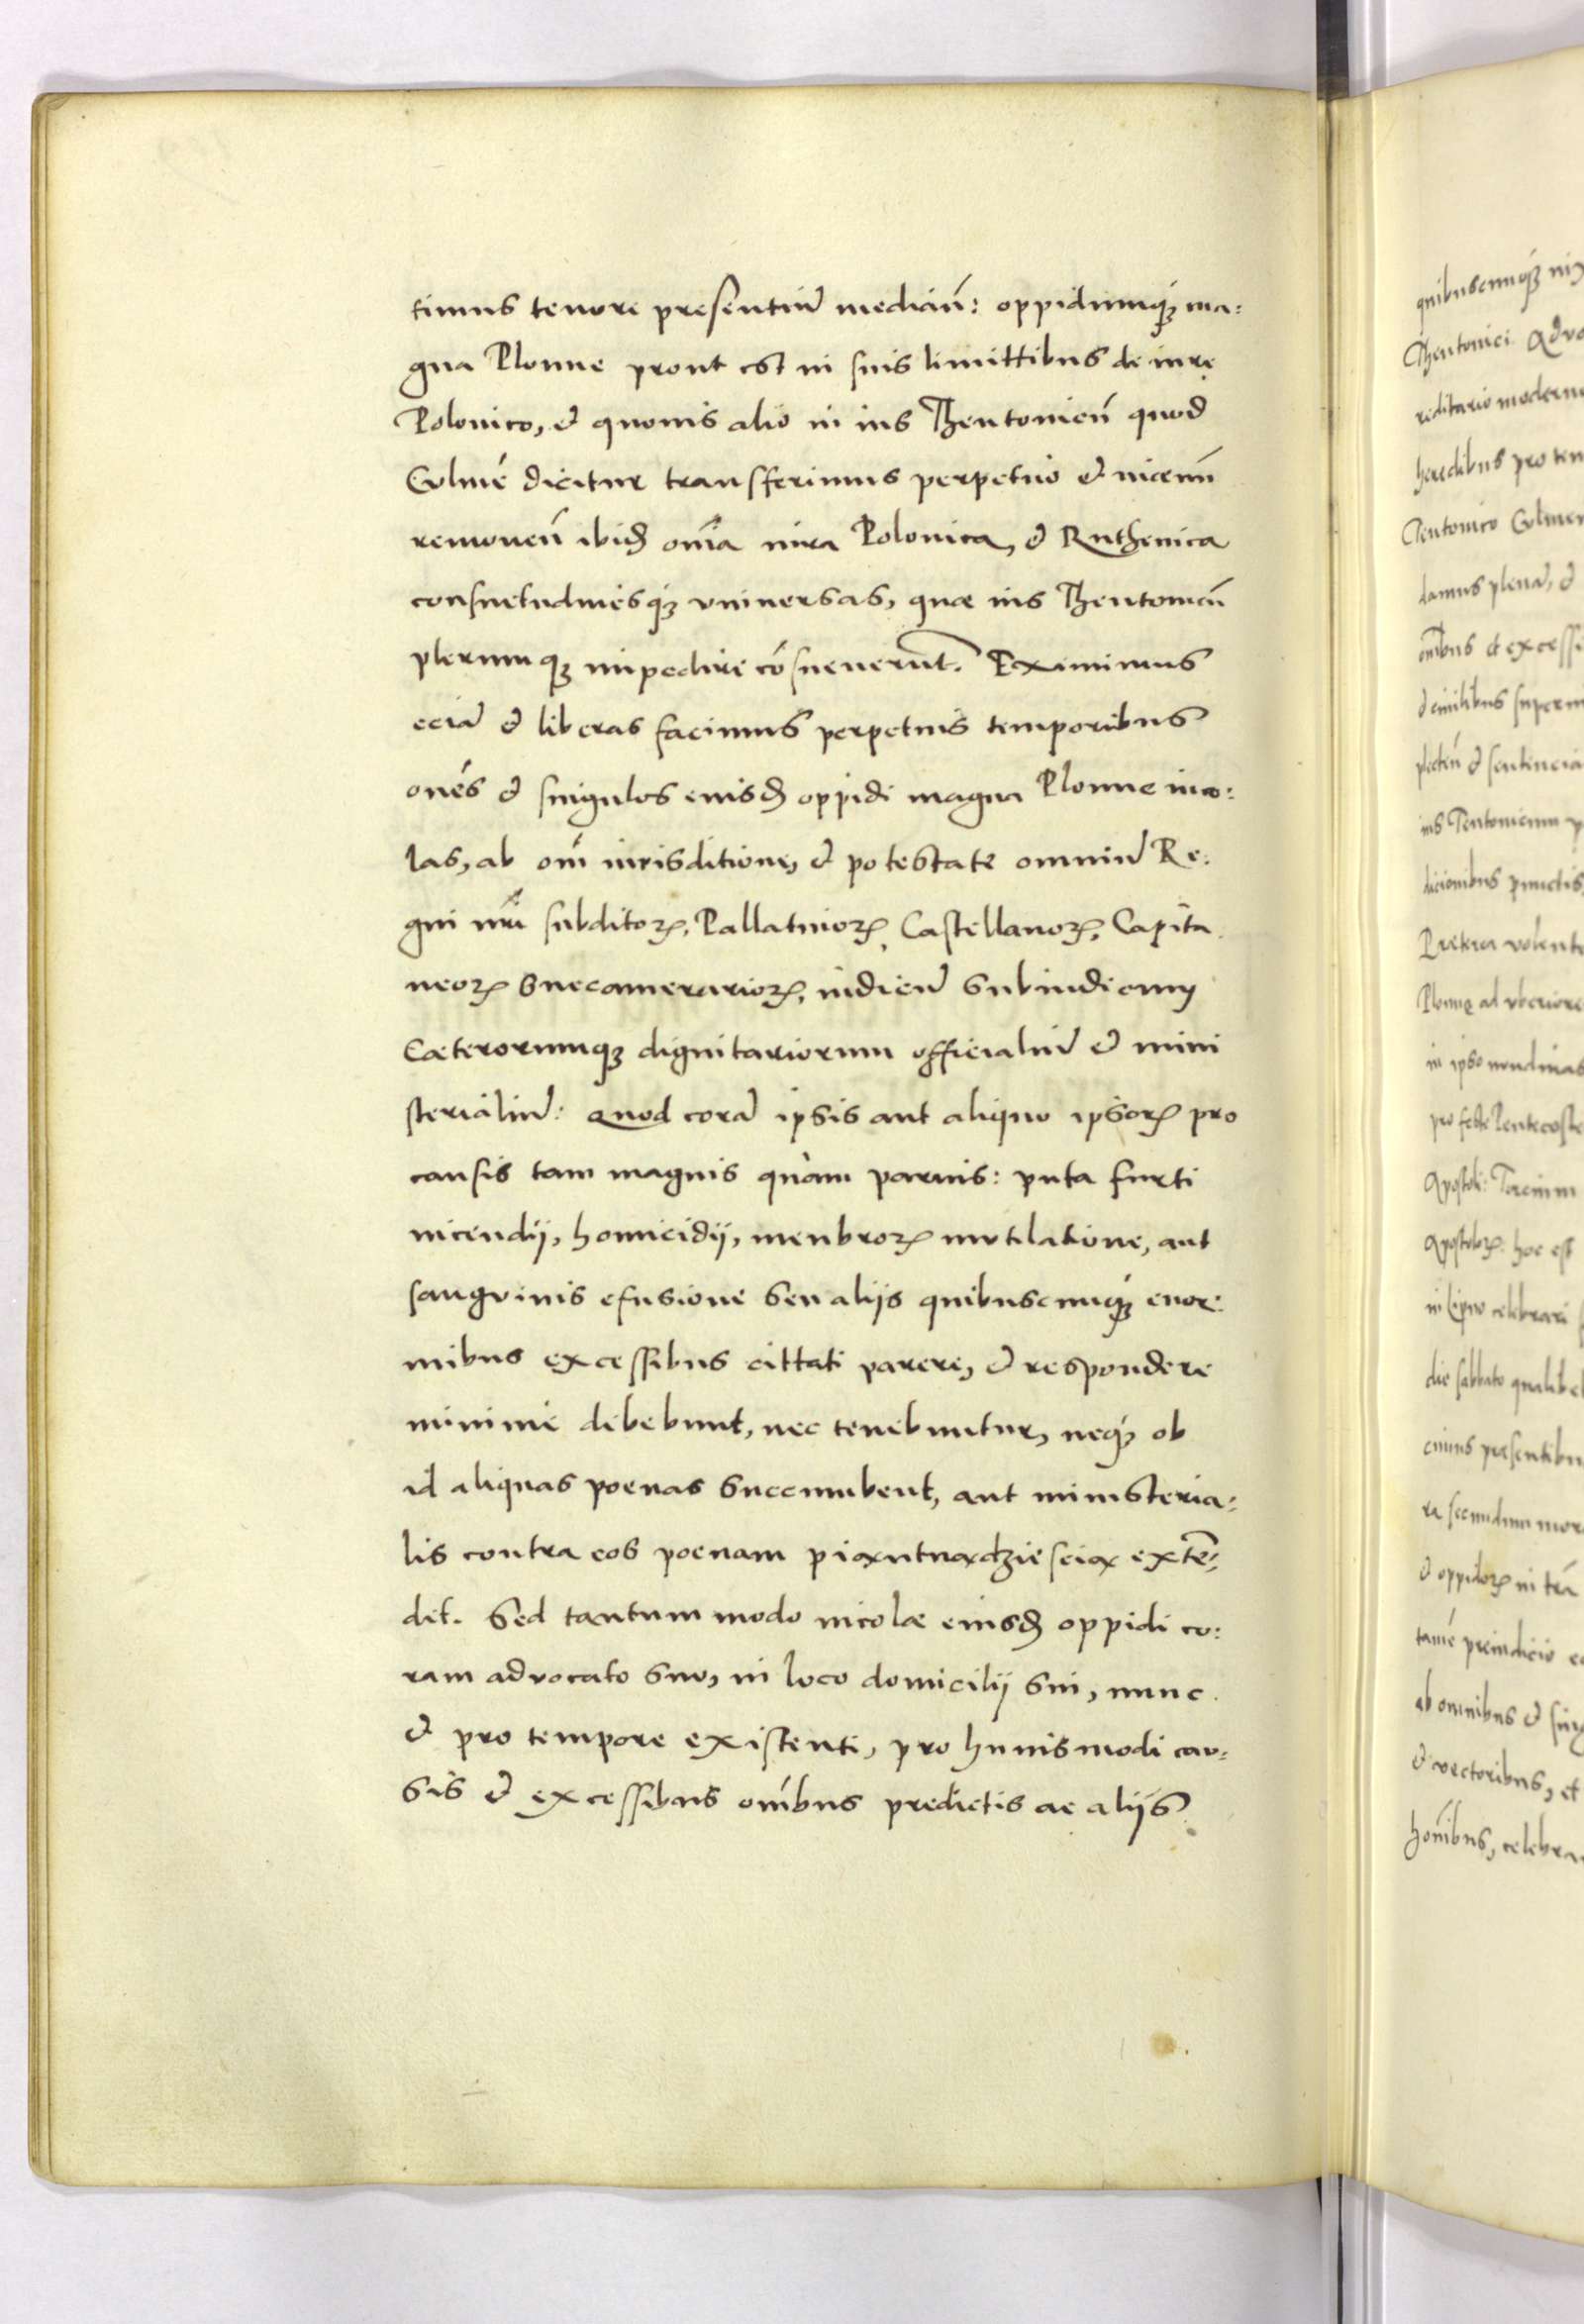 timus tenore presentiũ mediãñ: oppidumq́ꝫ ma:
gna Plonne prout est in suis limittibus de iure
Polonico, & quouis alio in ius Theutonicũ quod
Culmẽ dicitur transferimus perpetuo & in aeuũ
remoueñ ibidẽ om̃ia iura Polonica, & Ruthenica
consuetudinesqꝫ vniuersas, quae ius Theutonicũ
plerumqꝫ impedire cõsueuerũt. Eximimus
eciã & liberas facimus perpetuis temporibus
om̃es & singulos eiusdẽ oppidi magna Plonne inco:
las, ab om̃i iurisditione, & potestate omniũ Re:
gni nr̃i subditoꝝ, Pallatinoꝝ, Castellanoꝝ, Capita
neoꝝ Succamerarioꝝ, iudicũ Subiudicum
Caeterorumqꝫ dignitariorum officialiũ & mini
sterialiũ: Quod corã ipsis aut aliquo ipsoꝝ pro
causis tam magnis quàm paruis: puta furti
incendij, homicidij, menbroꝝ mutilatione, aut
sangvinis efusione Seu alijs quibuscumq́ꝫ enor:
mibus excessibus cittati parere, & respondere
minime debebunt, nec tenebuntur, neq́ꝫ ob
id aliquas poenas Succumbent, aut ministeria:
lis contra eos poenam piąntnądziescią extẽ:
det. Sed tantum modo incolae eiusdẽ oppidi co:
ram advocato Suo, in loco domicilij Sui, nunc
& pro tempore existenti, pro huiusmodi cau:
sis & excessibus om̃ibus predictis ac alijs
quibuscumq́ꝫ
Theutonici Advo
reditario modern
heredibus pro tem
Teutonico Culmen
damus plenã, &
om̃ibus et excessi
& ciuilibus super
plecteñ & sentencia
ius Teutonicum
dicionibus punctis
Praeterea volent
Plonne ad vberiore
in ipso nundinas
pro feste Pentecoste
Apostoli:
Apostoloꝝ: hoc est
in Lipno celebrari
die sabbato qualibe
ciuius praesentibu
re secundum mor
& oppidoꝝ in
tamẽ preiudicio
ab omnibus & sing
& vectoribus, et
hom̃ibus, celebra